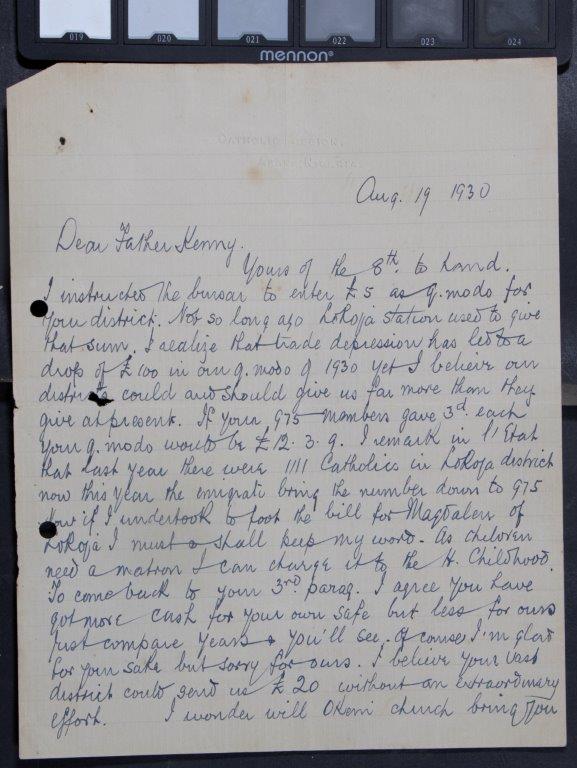 019 020 021 022 023 024
mennon®
CATHOLIC MISSION,
Aug. 19 1930
Dear Father Kenny.
Yours of the 8th. to hand.
I instructed the bursar to enter £5 as q. modo for
your district. Not so long ago Lokoja station used to give
that sum. I realize that trade depression has led to a
drop of £100 in our q. modo of 1930 yet I believe our
districts could and should give us far more than they
give at present. If your 975 members gave 3d each
your q. modo would be £12. 3. 9. I remark in l'Etat
that last year there were 1111 Catholics in Lokoja district
now this year the emigrati bring the number down to 975
Now if I undertook to foot the bill for Magdalen of
Lokoja I must & shall keep my word. As children
need a matron I can charge it to the H. Childhood.
To come back to your 3rd parag. I agree you have
got more cash for your own safe but less for ours
Just compare years & you'll see. Of course I'm glad
for your sake but sorry for ours. I believe your vast
district could send us £20 without an extraordinary
effort. I wonder will Okeni church bring you